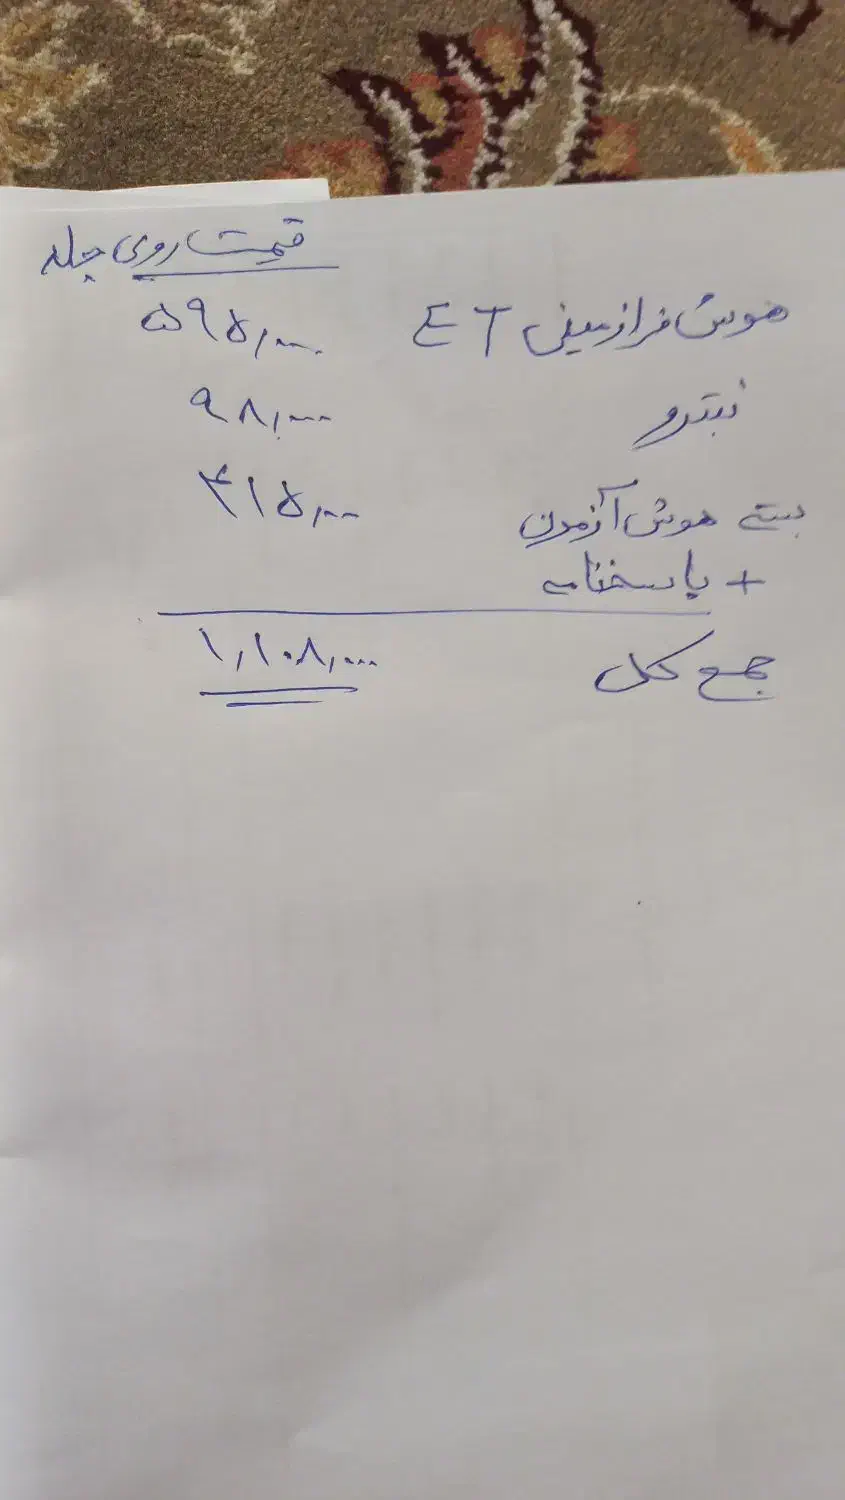 قیمت روی جلد
هوش فرازمینی ET ۵۹۵,۰۰۰
نیترو ۹۸,۰۰۰
بسته هوش آزمون ۴۱۵,۰۰۰
+ پاسخنامه
جمع کل ۱,۱۰۸,۰۰۰